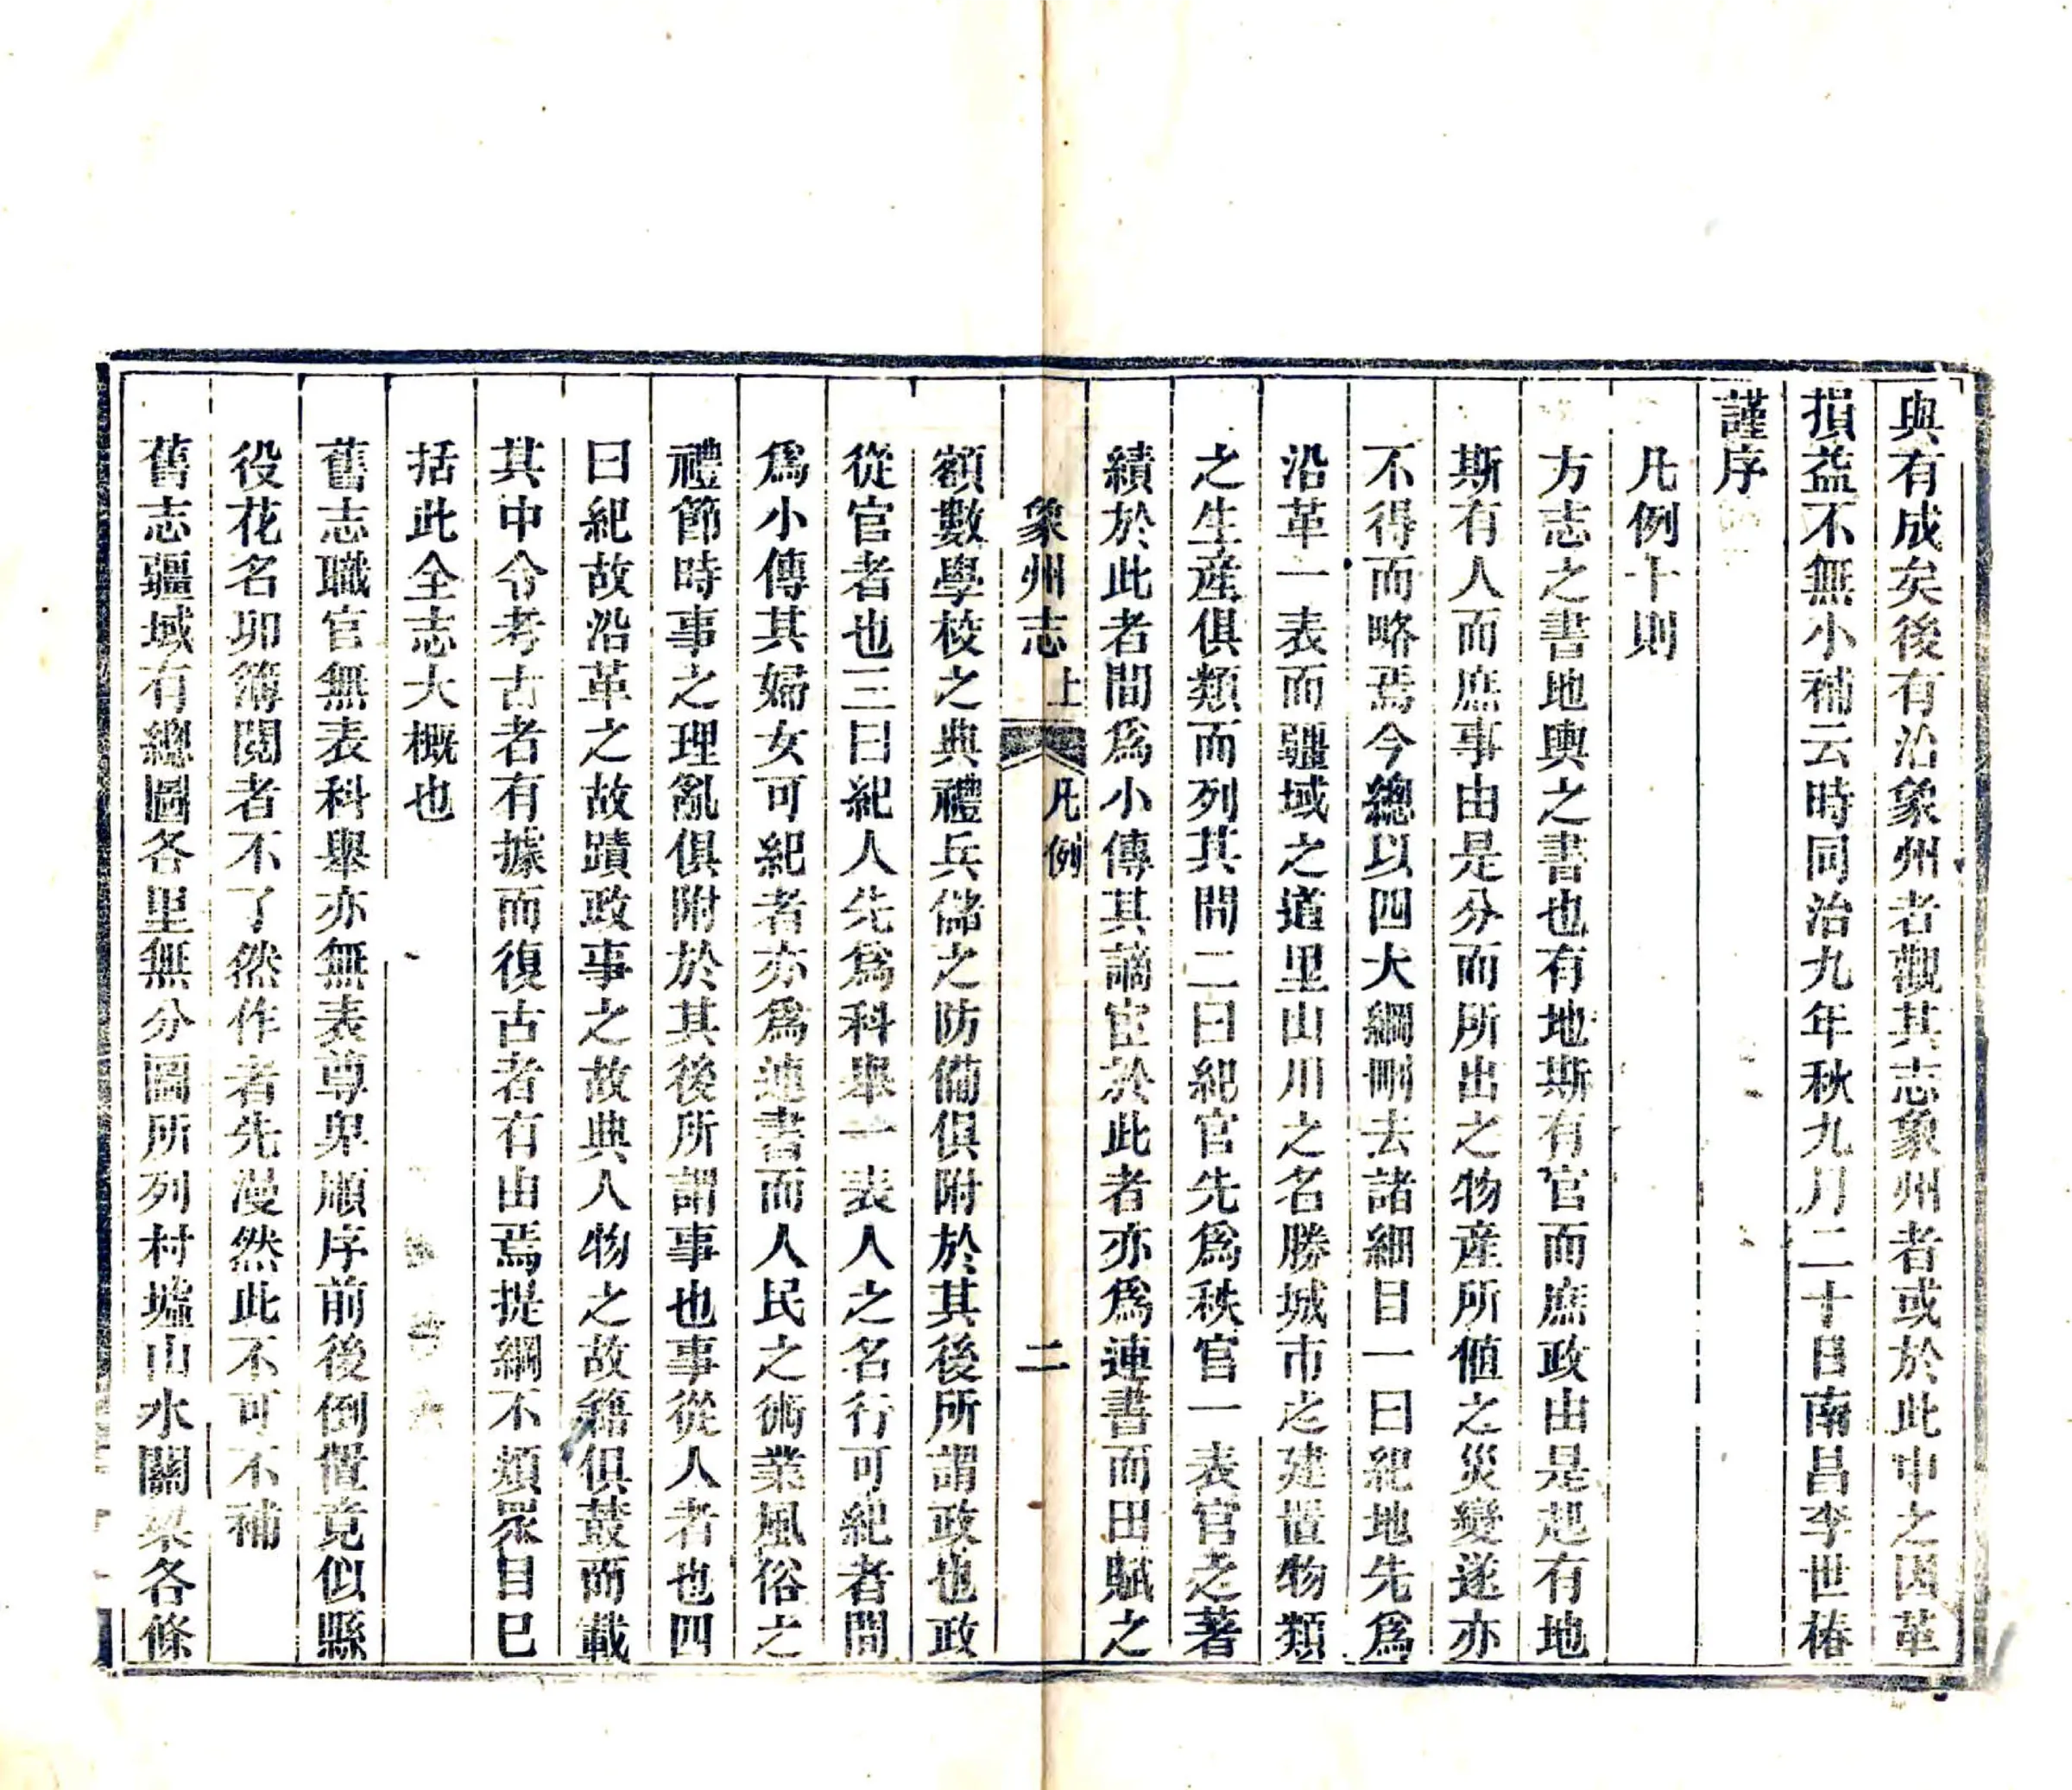 與有成矣後有治象州者觀其志象州者或於此中之因革
損益不無小補云時同治九年秋九月二十日南昌李世椿
謹序
凡例十則
方志之書地輿之書也有地斯有官而庶政由是起有地
斯有人而庶事由是分而所出之物產所値之災變遂亦
不得而略焉今總以四大綱刪去諸細目一曰紀地先爲
沿革一表而疆域之道里山川之名勝城市之建置物類
之生產俱類而列其間二曰紀官先爲秩官一表官之著
績於此者間爲小傳其謫宦於此者亦爲連書而田賦之
象州志 上 凡例 二
額數學校之典禮兵儲之防備俱附於其後所謂政也政
從官者也三曰紀人先爲科舉一表人之名行可紀者間
爲小傳其婦女可紀者亦爲連書而人民之術業風俗之
禮節時事之理亂俱附於其後所謂事也事從人者也四
曰紀故沿革之故蹟政事之故典人物之故籍俱鼓而載
其中令考古者有據而復古者有由焉提綱不頫眾目巳
括此全志大概也
舊志職官無表科舉亦無表尊卑順序前後倒置竟似縣
役花名卯簿閱者不了然作者先漫然此不可不補
舊志疆域有總圖各里無分圖所列村墟山水關梁各條